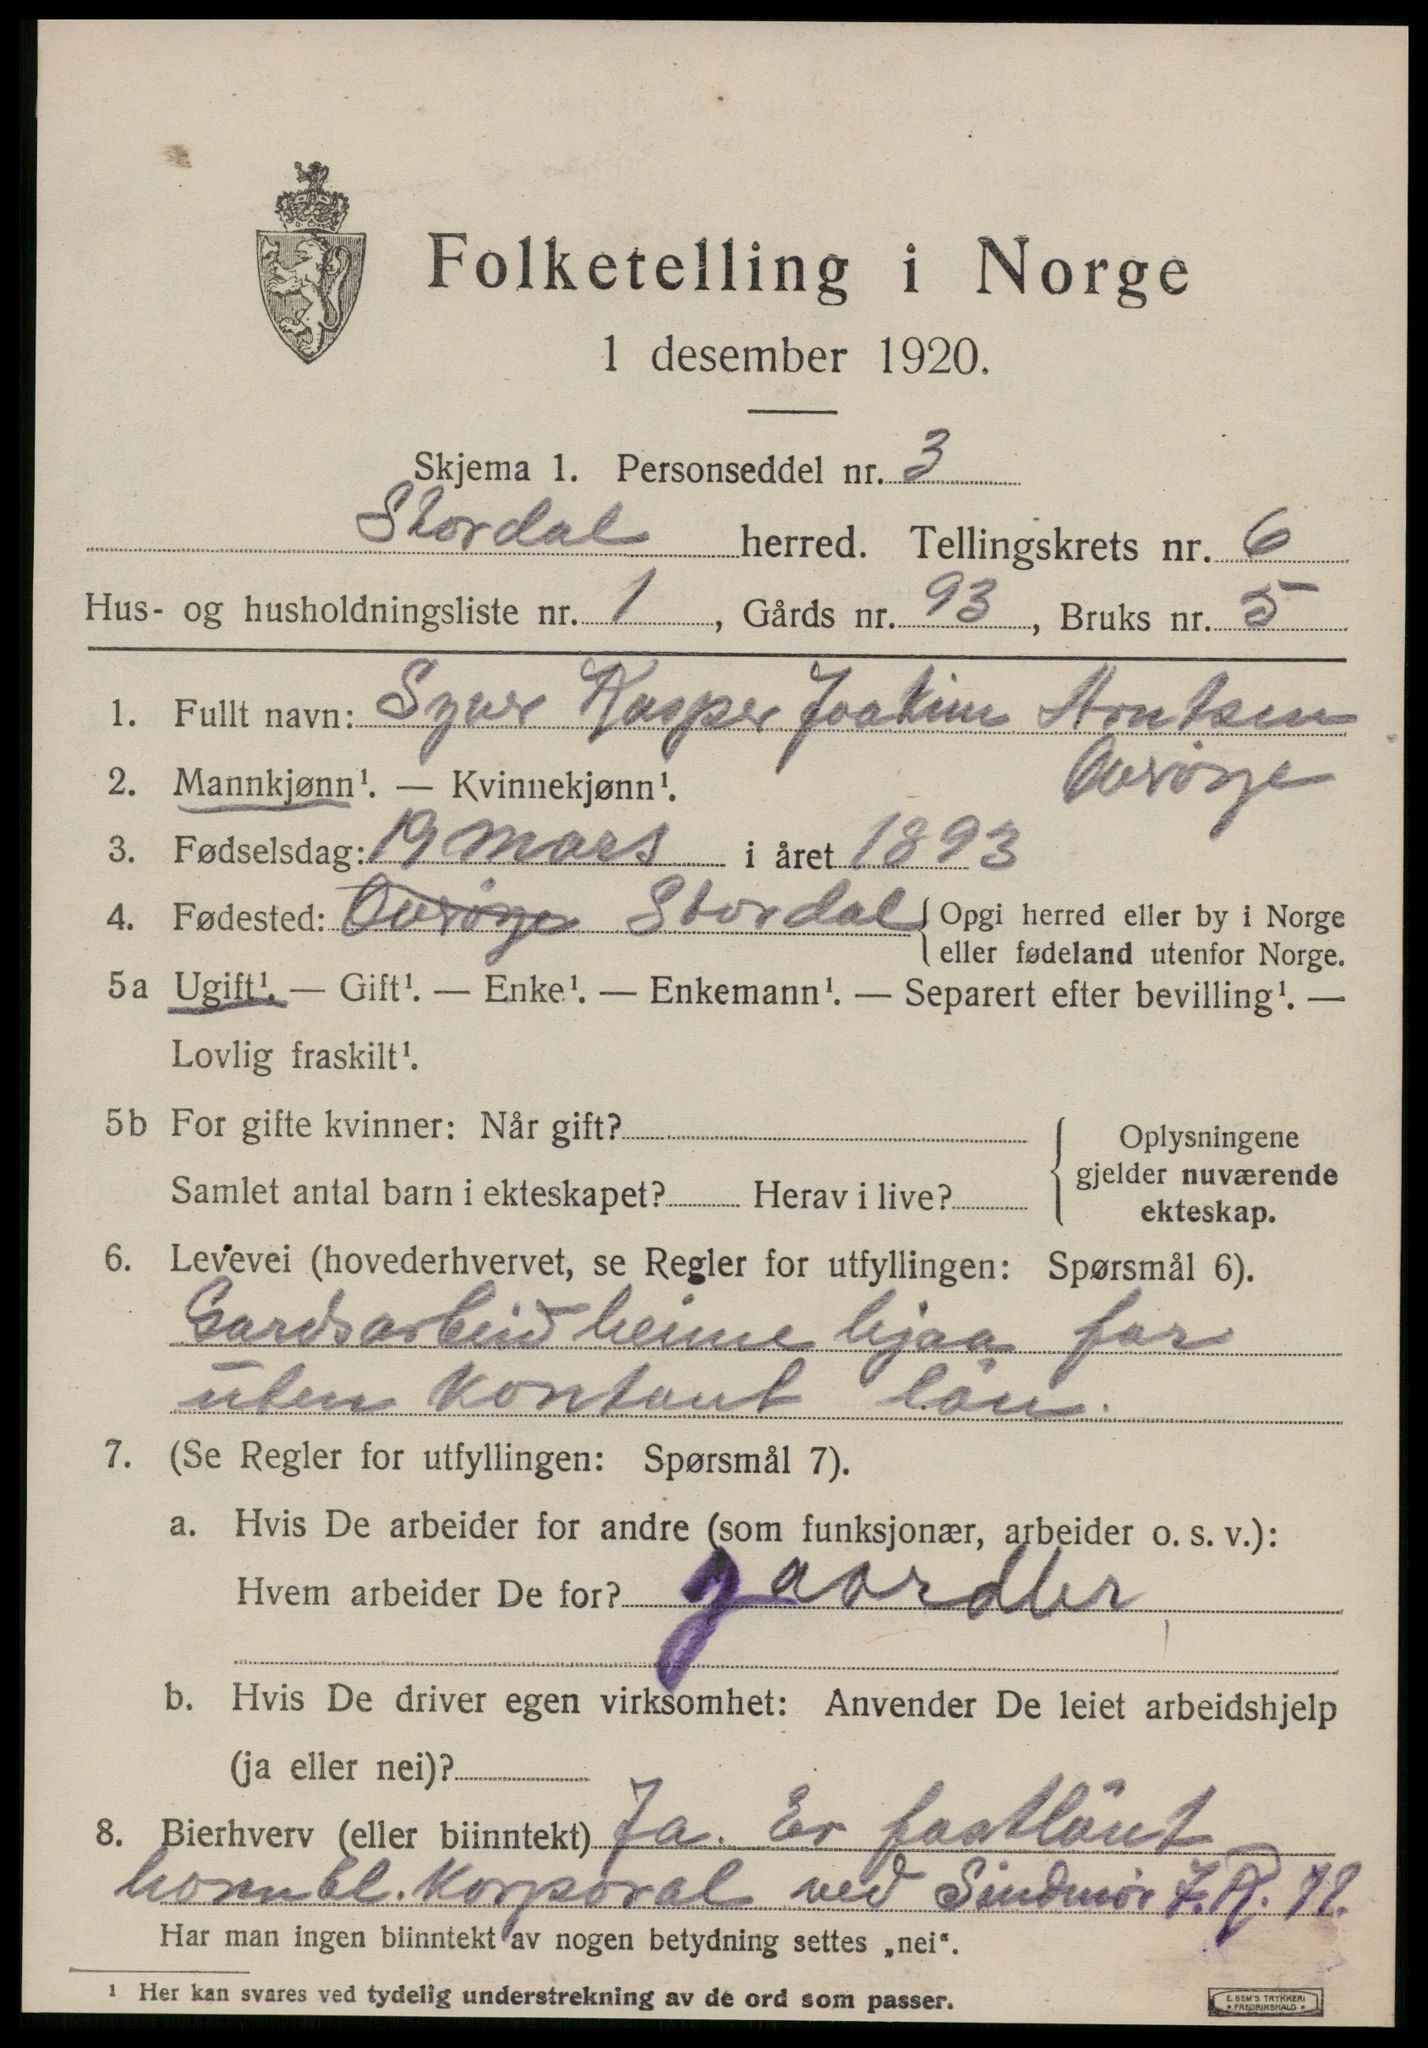 Folketelling i Norge
1 desember 1920.
Skjema 1. Personseddel nr. 3
Stordal herred. Tellingskrets nr. 6
Hus- og husholdningsliste nr. 1, Gårds nr. 93, Bruks nr. 5
1. Fullt navn: Syver Kasper Joakim Arntsen
Overøye
2. Mannkjønn¹. — Kvinnekjønn¹.
3. Fødselsdag: 19 mars i året 1893
4. Fødested: Overøye Stordal { Opgi herred eller by i Norge
eller fødeland utenfor Norge.
5a Ugift¹. — Gift¹. — Enke¹. — Enkemann¹. — Separert efter bevilling¹. —
Lovlig fraskilt¹.
5b For gifte kvinner: Når gift?
Samlet antal barn i ekteskapet? Herav i live?
Oplysningene
gjelder nuværende
ekteskap.
6. Levevei (hovederhvervet, se Regler for utfyllingen: Spørsmål 6).
Gardsarbeid heime hjaa far
uten kontant løn.
7. (Se Regler for utfyllingen: Spørsmål 7).
a. Hvis De arbeider for andre (som funksjonær, arbeider o. s. v.):
Hvem arbeider De for? gaardbr
b. Hvis De driver egen virksomhet: Anvender De leiet arbeidshjelp
(ja eller nei)?
8. Bierhverv (eller biinntekt) Ja. Er fastlönt
hornbl. Korporal ved Sindmör I.R. 11.
Har man ingen biinntekt av nogen betydning settes „nei“.
¹ Her kan svares ved tydelig understrekning av de ord som passer.
E. SEM'S TRYKKERI
FREDRIKSHALD